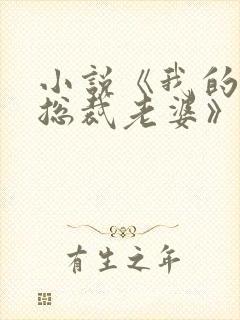 小说《我的
总裁老婆》
有生之年